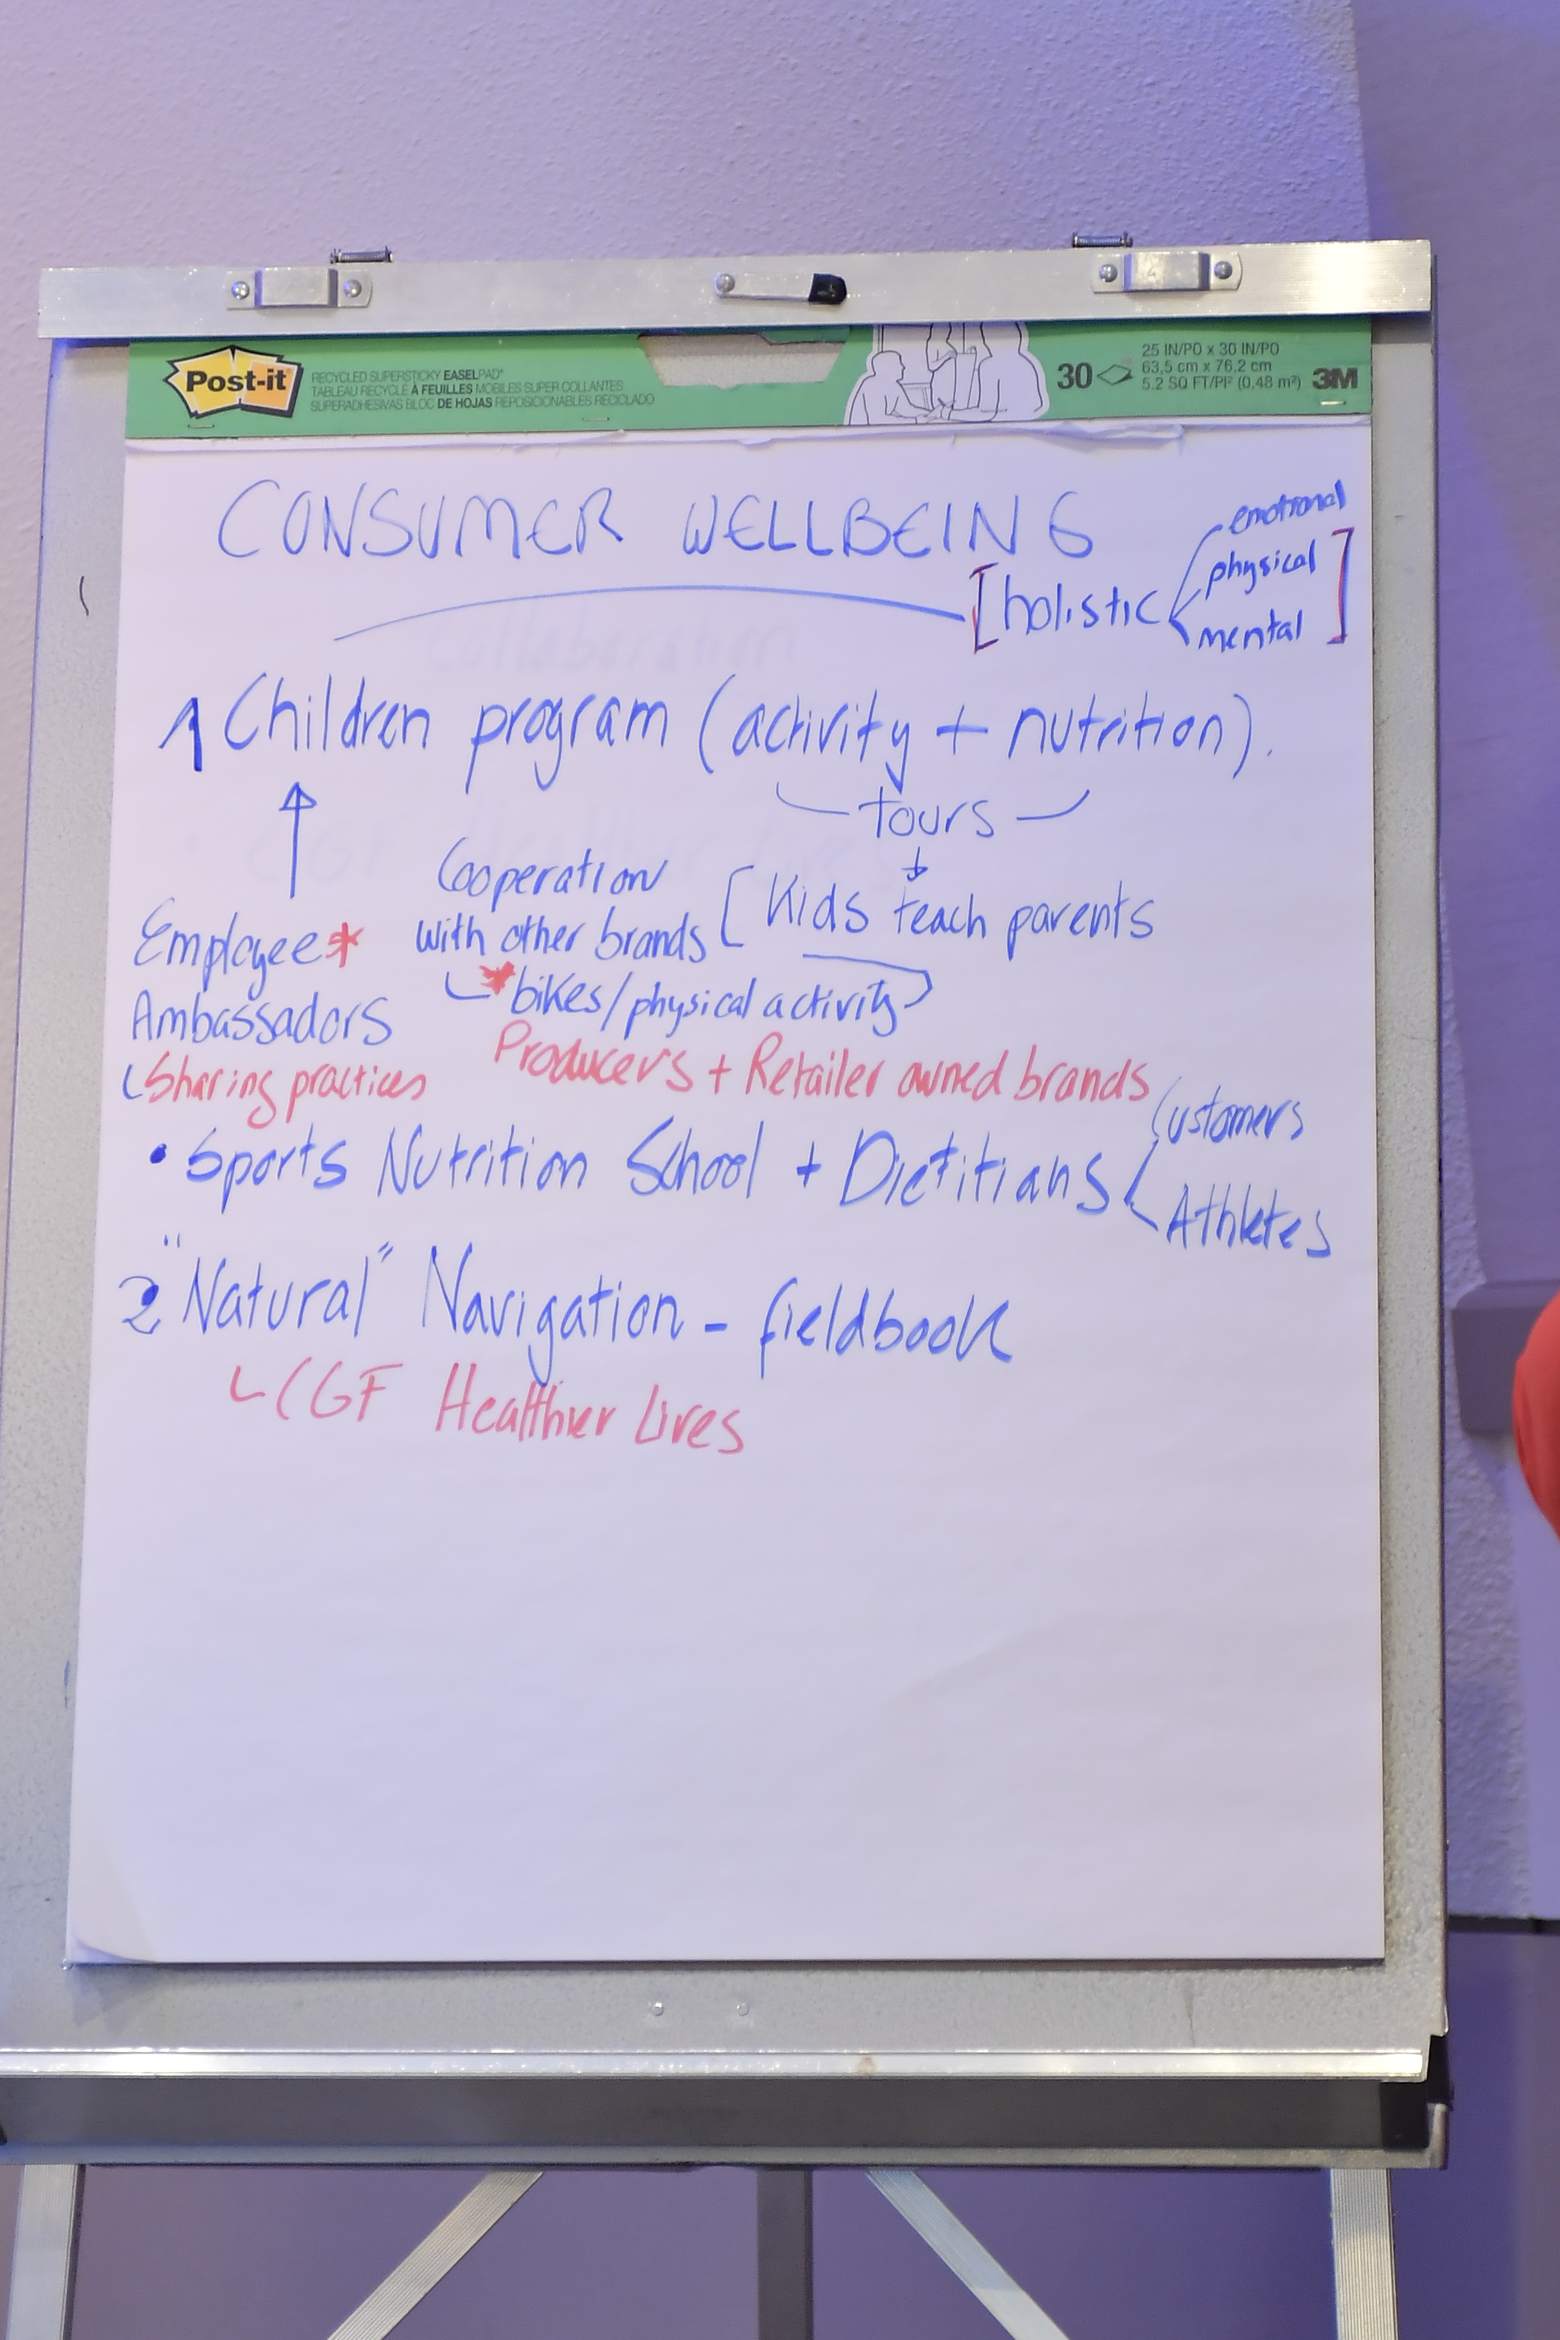 Post-it
RECYCLED SUPERSTICKY EASELPAD*
TABLEAU RECYCLÉ À FEUILLES MOBILES SUPER COLLANTES
SUPERADHESIVAS BLOC DE HOJAS REPOSICIONABLES RECICLADO
30
25 IN/PO x 30 IN/PO
63,5 cm x 76,2 cm
5.2 SQ FT/PI² (0,48 m²)
3M
CONSUMER WELLBEING
[holistic
emotional
physical
mental ]
1 Children program (activity + nutrition).
tours
Employee*
Ambassadors
Sharing practices
Cooperation
with other brands
*bikes/physical activity
[Kids teach parents
Producers + Retailer owned brands
• Sports Nutrition School + Dietitians
Customers
Athletes
2 "Natural" Navigation - fieldbook
CGF Healthier Lives